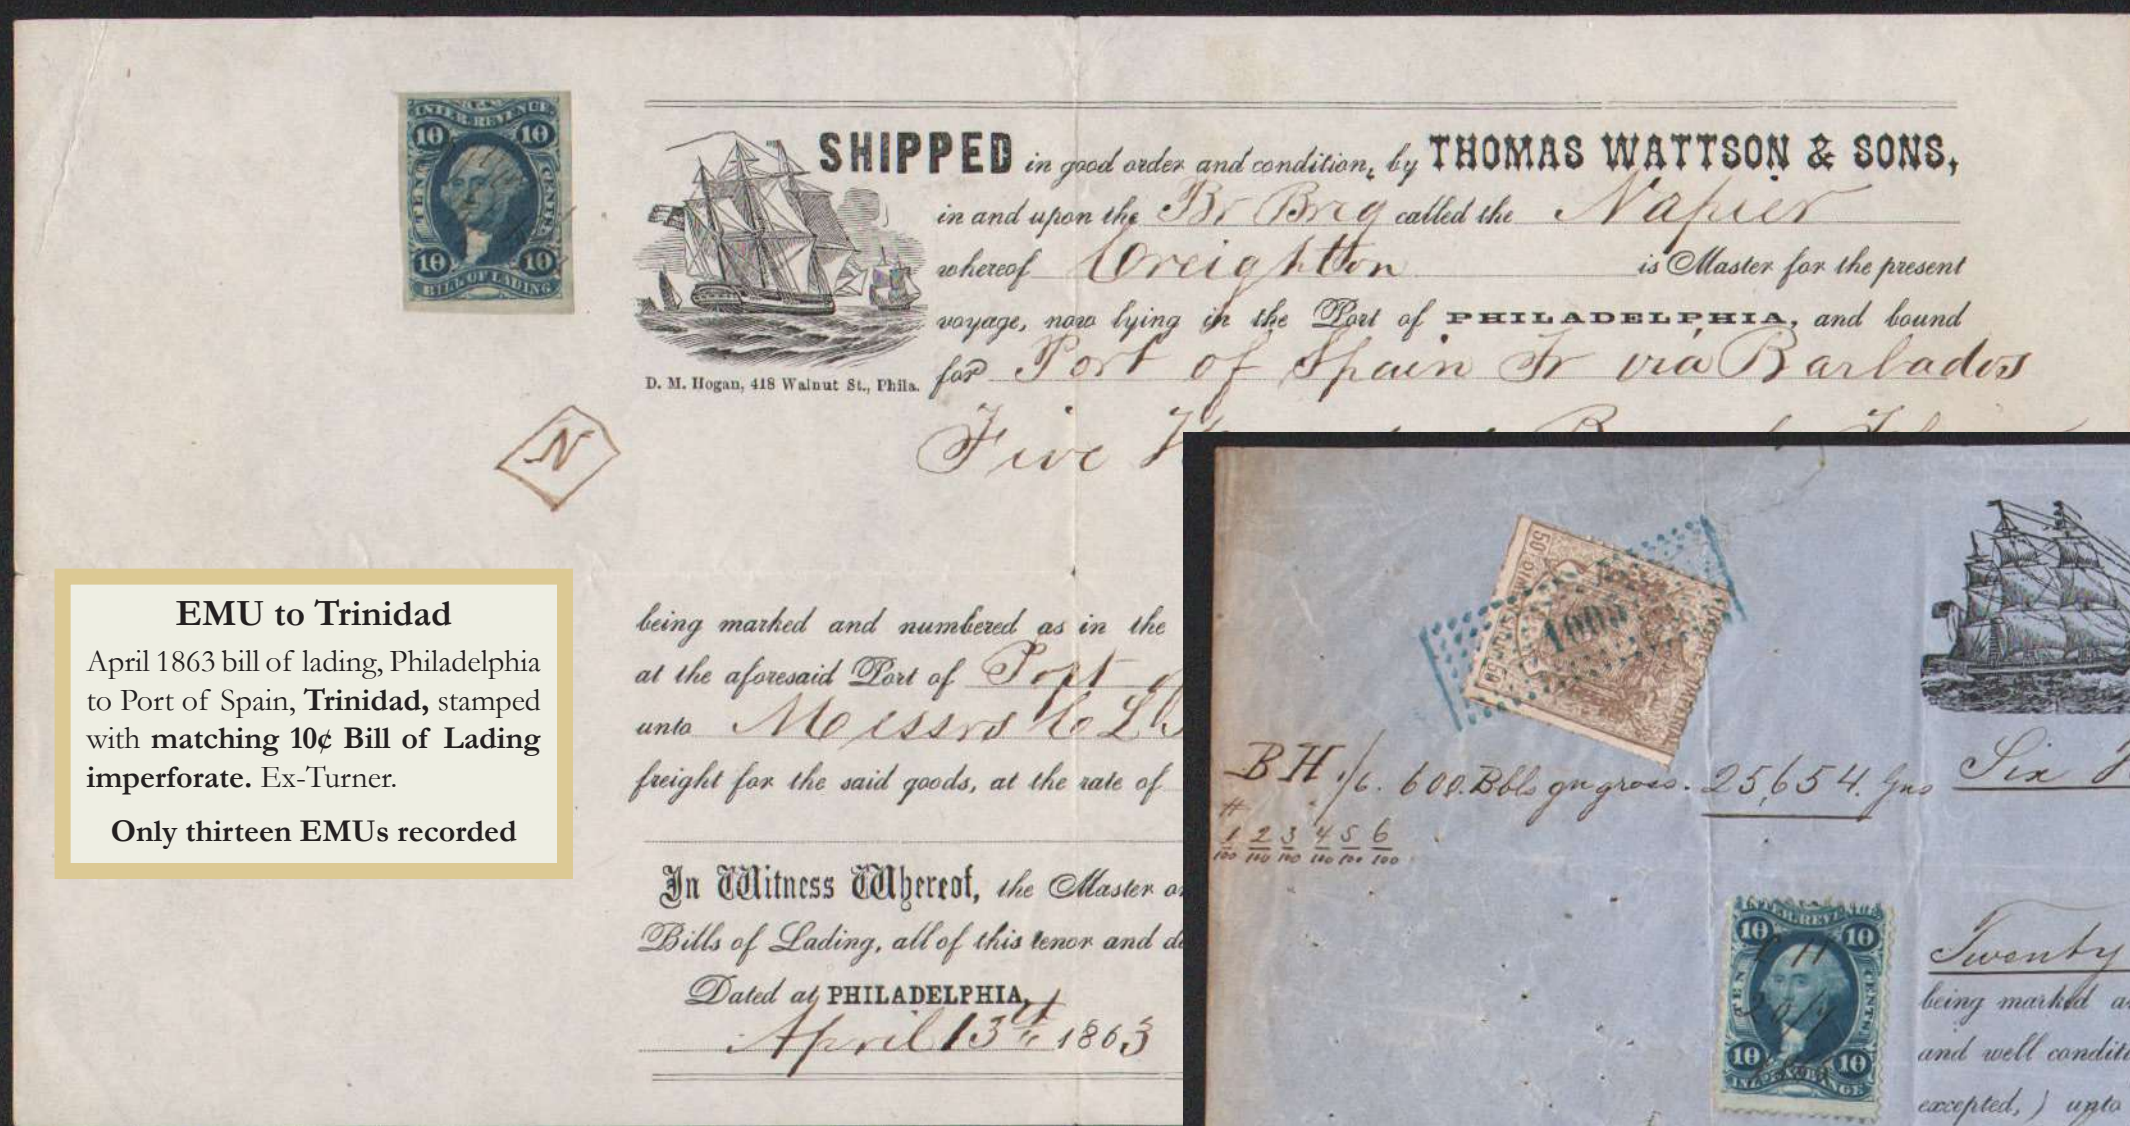 U.S.
INTER. REVENUE
10 10
TEN CENTS.
10 10
BILL OF LADING
SHIPPED in good order and condition, by THOMAS WATTSON & SONS,
in and upon the Br Brig called the Napier
whereof Creighton is Master for the present
voyage, now lying in the Port of PHILADELPHIA, and bound
for Port of Spain Tr via Barbados
D. M. Hogan, 418 Walnut St., Phila.
N
Five
being marked and numbered as in the
at the aforesaid Port of Port
unto Messrs
freight for the said goods, at the rate of
In Witness Whereof, the Master
Bills of Lading, all of this tenor and
Dated at PHILADELPHIA,
April 13th 1863
EMU to Trinidad
April 1863 bill of lading, Philadelphia
to Port of Spain, Trinidad, stamped
with matching 10¢ Bill of Lading
imperforate. Ex-Turner.
Only thirteen EMUs recorded
50
BH 1/6. 600. Bbls gn gross. 25,654. Gns
Six
1 2 3 4 5 6
100 100 100 100 100 100
INTER. REVENUE
10 10
TEN CENTS.
10 10
Twenty
being marked
and well
excepted, ) unto